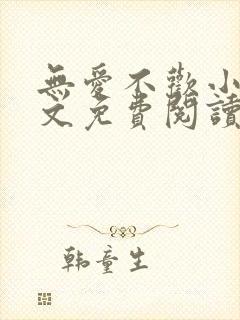 無愛不歡小
文免費閱讀
韩童生